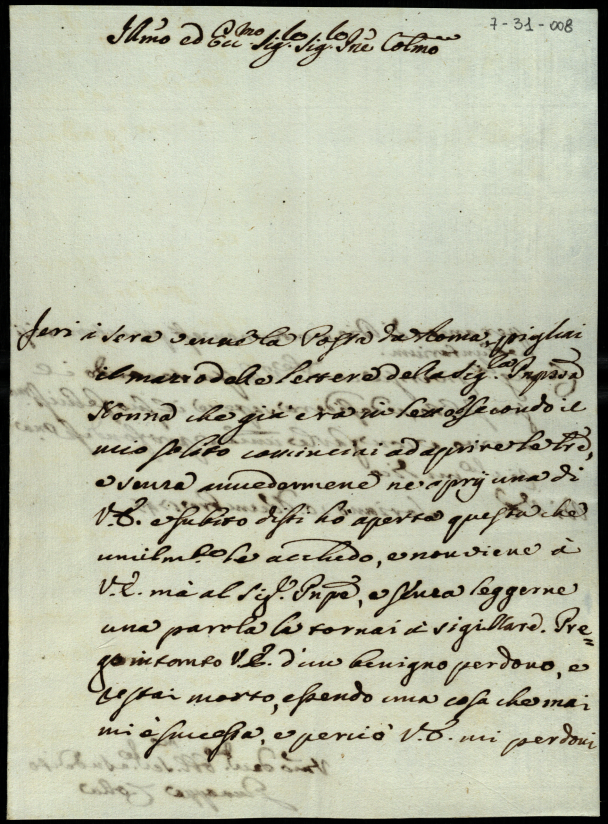 7-31-008
Illmo ed Eccmo Sig.lo Sig.lo Pne Colmo
Jeri i sera venne la Posta da Roma, pigliai
il mazzo delle lettere della Sig.la Pnpssa
Nonna che già era in letto, secondo il
mio solito cominciai ad aprire le tre,
e senza avvedermene ne aprij una di
V.E. e subito dissi hò aperta questa che
umilm.te le acchiudo, e non viene à
V.E. mà al Sig.r Pnpe, e senza leggerne
una parola la tornai à sigillare. Pre-
go intanto V.E. d'un benigno perdono, e
restai morto, essendo una cosa che mai
mi è successa, e perciò V.E. mi perdoni